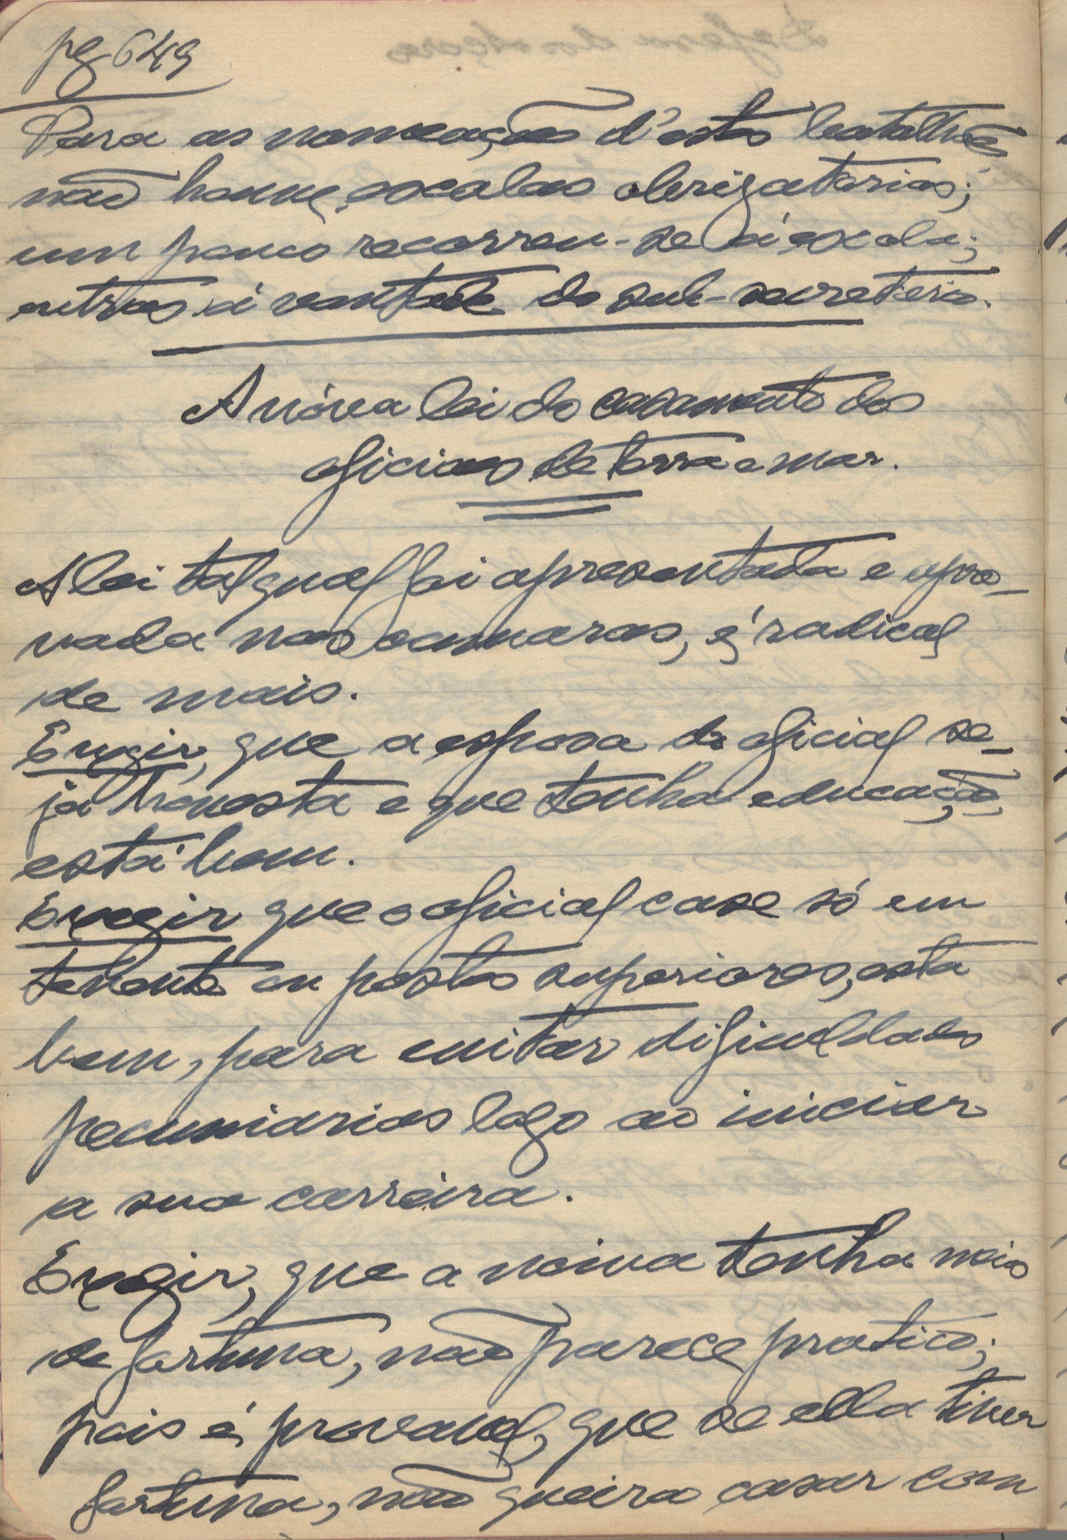 pg 649
Para as nomeações d'estes batalhões
não houve escalas obrigatorias;
um pouco recorreu-se á escala;
outros á vontade do sub-secretario.
A nóva lei do casamento dos
oficiaes de terra e mar.
A lei tal qual foi apresentada e apro-
vada nas camaras, é radical
de mais.
Exigir, que a esposa do oficial se-
ja honesta e que tenha educação,
está bem.
Exegir que o oficial case só em
tenente ou postos superiores, está
bem, para evitar dificuldades
pecuniarias logo ao iniciar
a sua carreira.
Exegir, que a noiva tenha meios
de fortuna, não parece pratico;
pois é provavel, que se ella tiver
fortuna, não queira casar com